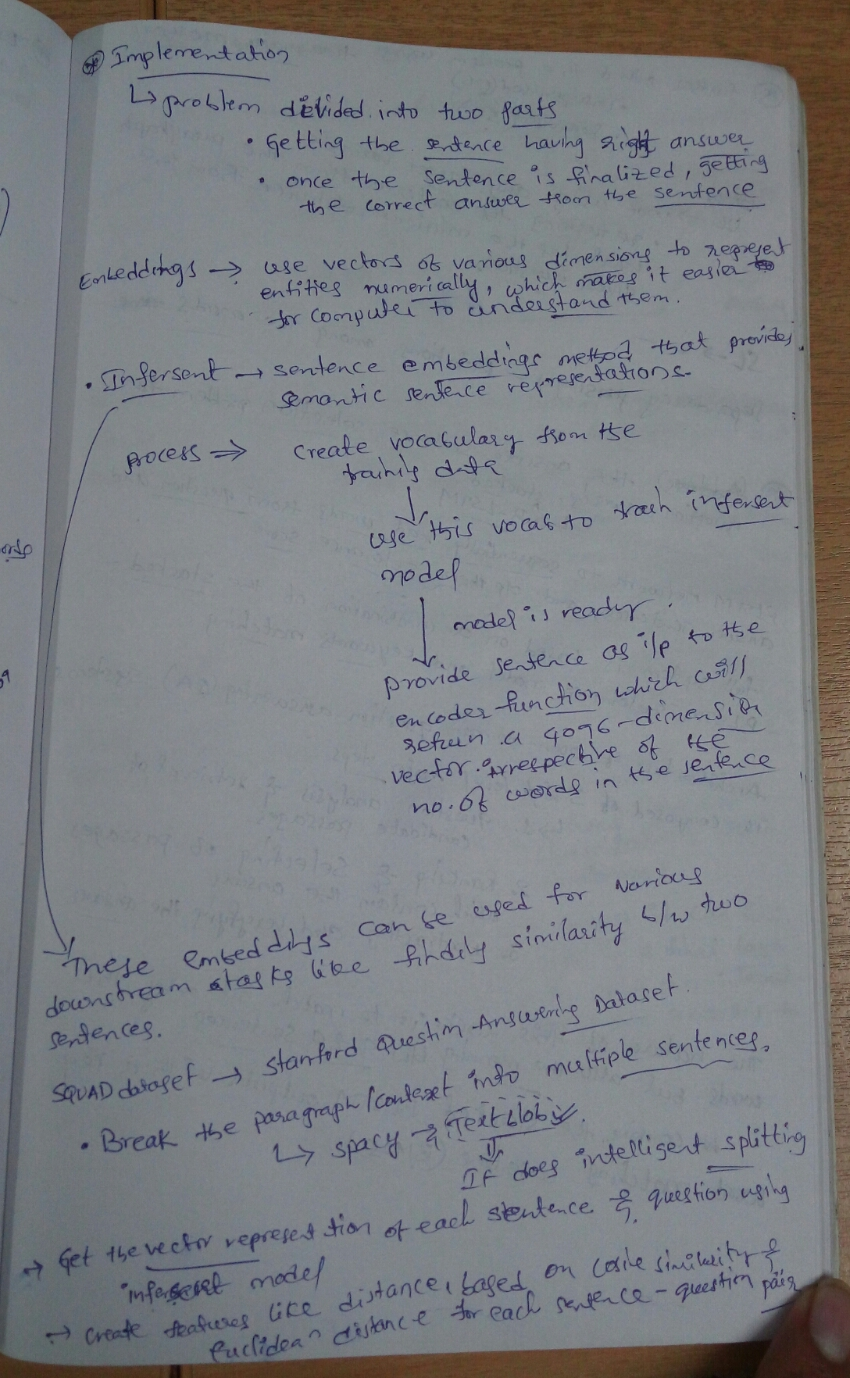 Implementation
↳ problem divided into two parts
• Getting the sentence having right answer
• once the sentence is finalized, getting
the correct answer from the sentence
Embeddings → use vectors of various dimensions to represent
entities numerically, which makes it easier
for computer to understand them.
• Infersent → sentence embeddings method that provides
semantic sentence representations.
process ⇒ create vocabulary from the
training data
↓
use this vocab to train infersent
model
↓ model is ready.
provide sentence as i/p to the
encoder function which will
return a 4096-dimension
vector irrespective of the
no. of words in the sentence
These embeddings can be used for various
downstream tasks like finding similarity b/w two
sentences.
SQUAD dataset → Stanford Question Answering Dataset.
• Break the paragraph/context into multiple sentences.
↳ spacy & Textblob
⇓
It does intelligent splitting
→ Get the vector representation of each sentence & question using
infersent model
→ create features like distance, based on cosine similarity &
Euclidean distance for each sentence-question pair